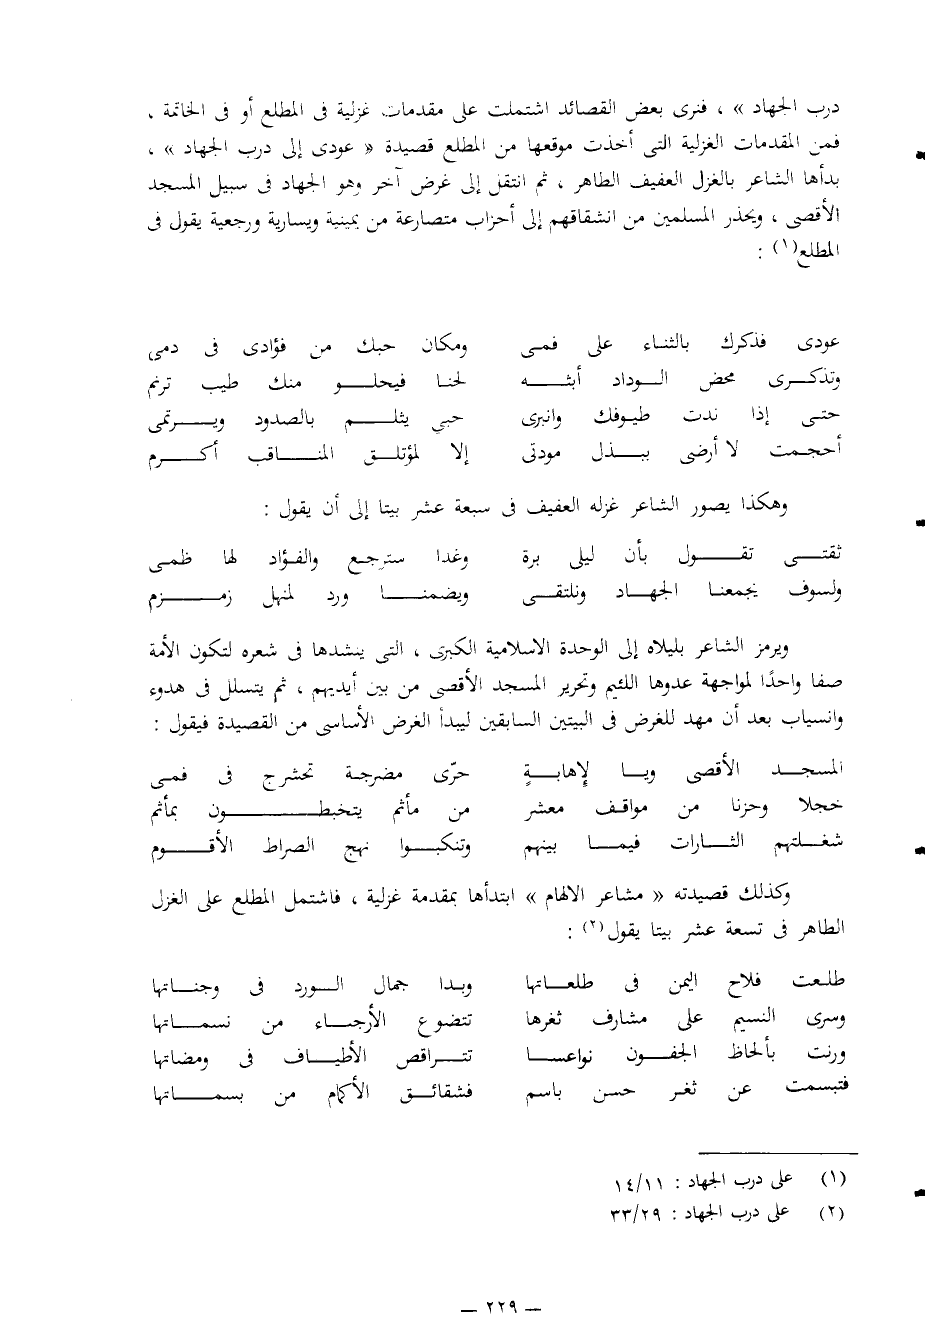 درب الجهاد » ، فنرى بعض القصائد اشتملت على مقدمات غزلية فى المطلع أو فى الخاتمة ،
فمن المقدمات الغزلية التى أخذت موقعها من المطلع قصيدة « عودى إلى درب الجهاد » ،
بدأها الشاعر بالغزل العفيف الطاهر ، ثم انتقل إلى غرض آخر وهو الجهاد فى سبيل المسجد
الأقصى ، ويحذر المسلمين من انشقاقهم إلى أحزاب متصارعة من يمينية ويسارية ورجعية يقول فى
المطلع(١) :
عودى فذكرك بالثناء على فمى ومكان حبك من فؤادى فى دمى
وتذكرى محض الوداد أبثه لحنا فيحلو منك طيب ترنم
حتى إذا ندت طيوفك وانبرى حبي يثلم بالصدود ويرتمى
أحجمت لا أرضى ببذل مودتى إلا لمؤتلق المناقب أكرم
وهكذا يصور الشاعر غزله العفيف فى سبعة عشر بيتا إلى أن يقول :
ثقتى تقول بأن ليلى برة وغدا سترجع والفؤاد لها ظمى
ولسوف يجمعنا الجهاد ونلتقى ويضمنا ورد لمنهل زمزم
ويرمز الشاعر بليلاه إلى الوحدة الاسلامية الكبرى ، التى ينشدها فى شعره لتكون الأمة
صفا واحدًا لمواجهة عدوها اللئيم وتحرير المسجد الأقصى من بين أيديهم ، ثم يتسلل فى هدوء
وانسياب بعد أن مهد للغرض فى البيتين السابقين ليبدأ الغرض الأساسى من القصيدة فيقول :
المسجد الأقصى ويا لإهابةٍ حرّى مضرجة تحشرج فى فمى
خجلا وحزنا من مواقف معشر من مأثم يتخبطون بمأثم
شغلتهم الثارات فيما بينهم وتنكبوا نهج الصراط الأقوم
وكذلك قصيدته « مشاعر الالهام » ابتدأها بمقدمة غزلية ، فاشتمل المطلع على الغزل
الطاهر فى تسعة عشر بيتا يقول(٢) :
طلعت فلاح اليمن فى طلعاتها وبدا جمال الورد فى وجناتها
وسرى النسيم على مشارف ثغرها تتضوع الأرجاء من نسماتها
ورنت بألحاظ الجفون نواعسا تتراقص الأطياف فى ومضاتها
فتبسمت عن ثغر حسن باسم فشقائق الأكمام من بسماتها
(١) على درب الجهاد : ١٤/١١
(٢) على درب الجهاد : ٣٣/٢٩
— ٢٢٩ —